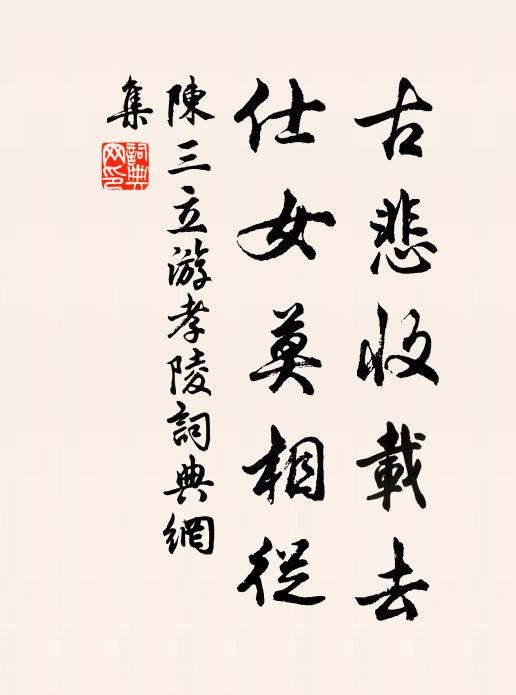 古悲收載去
仕女莫相從
陳三立游孝陵詞典網
集
詞典网印